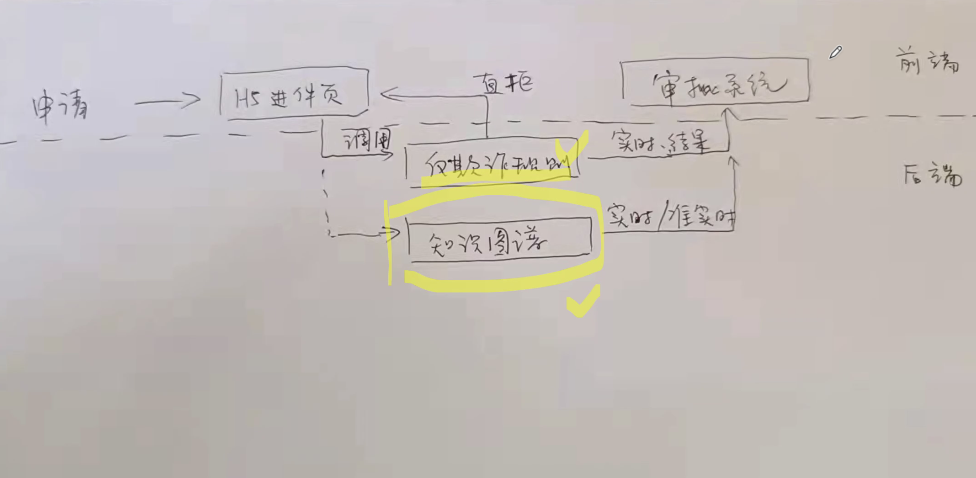 前端
申请
H5进件页
直拒
审批系统
调用
反欺诈规则
实时结果
后端
知识图谱
实时/准实时